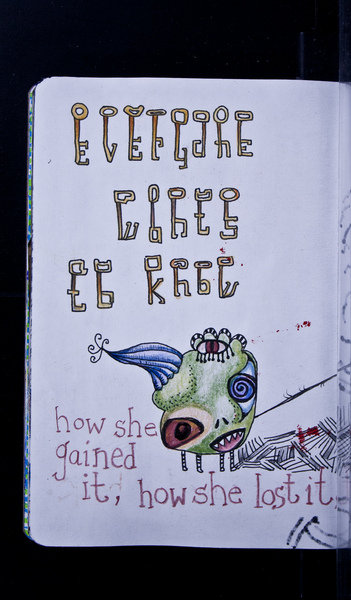 everyone
wants
to know
how she
gained
it, how she lost it